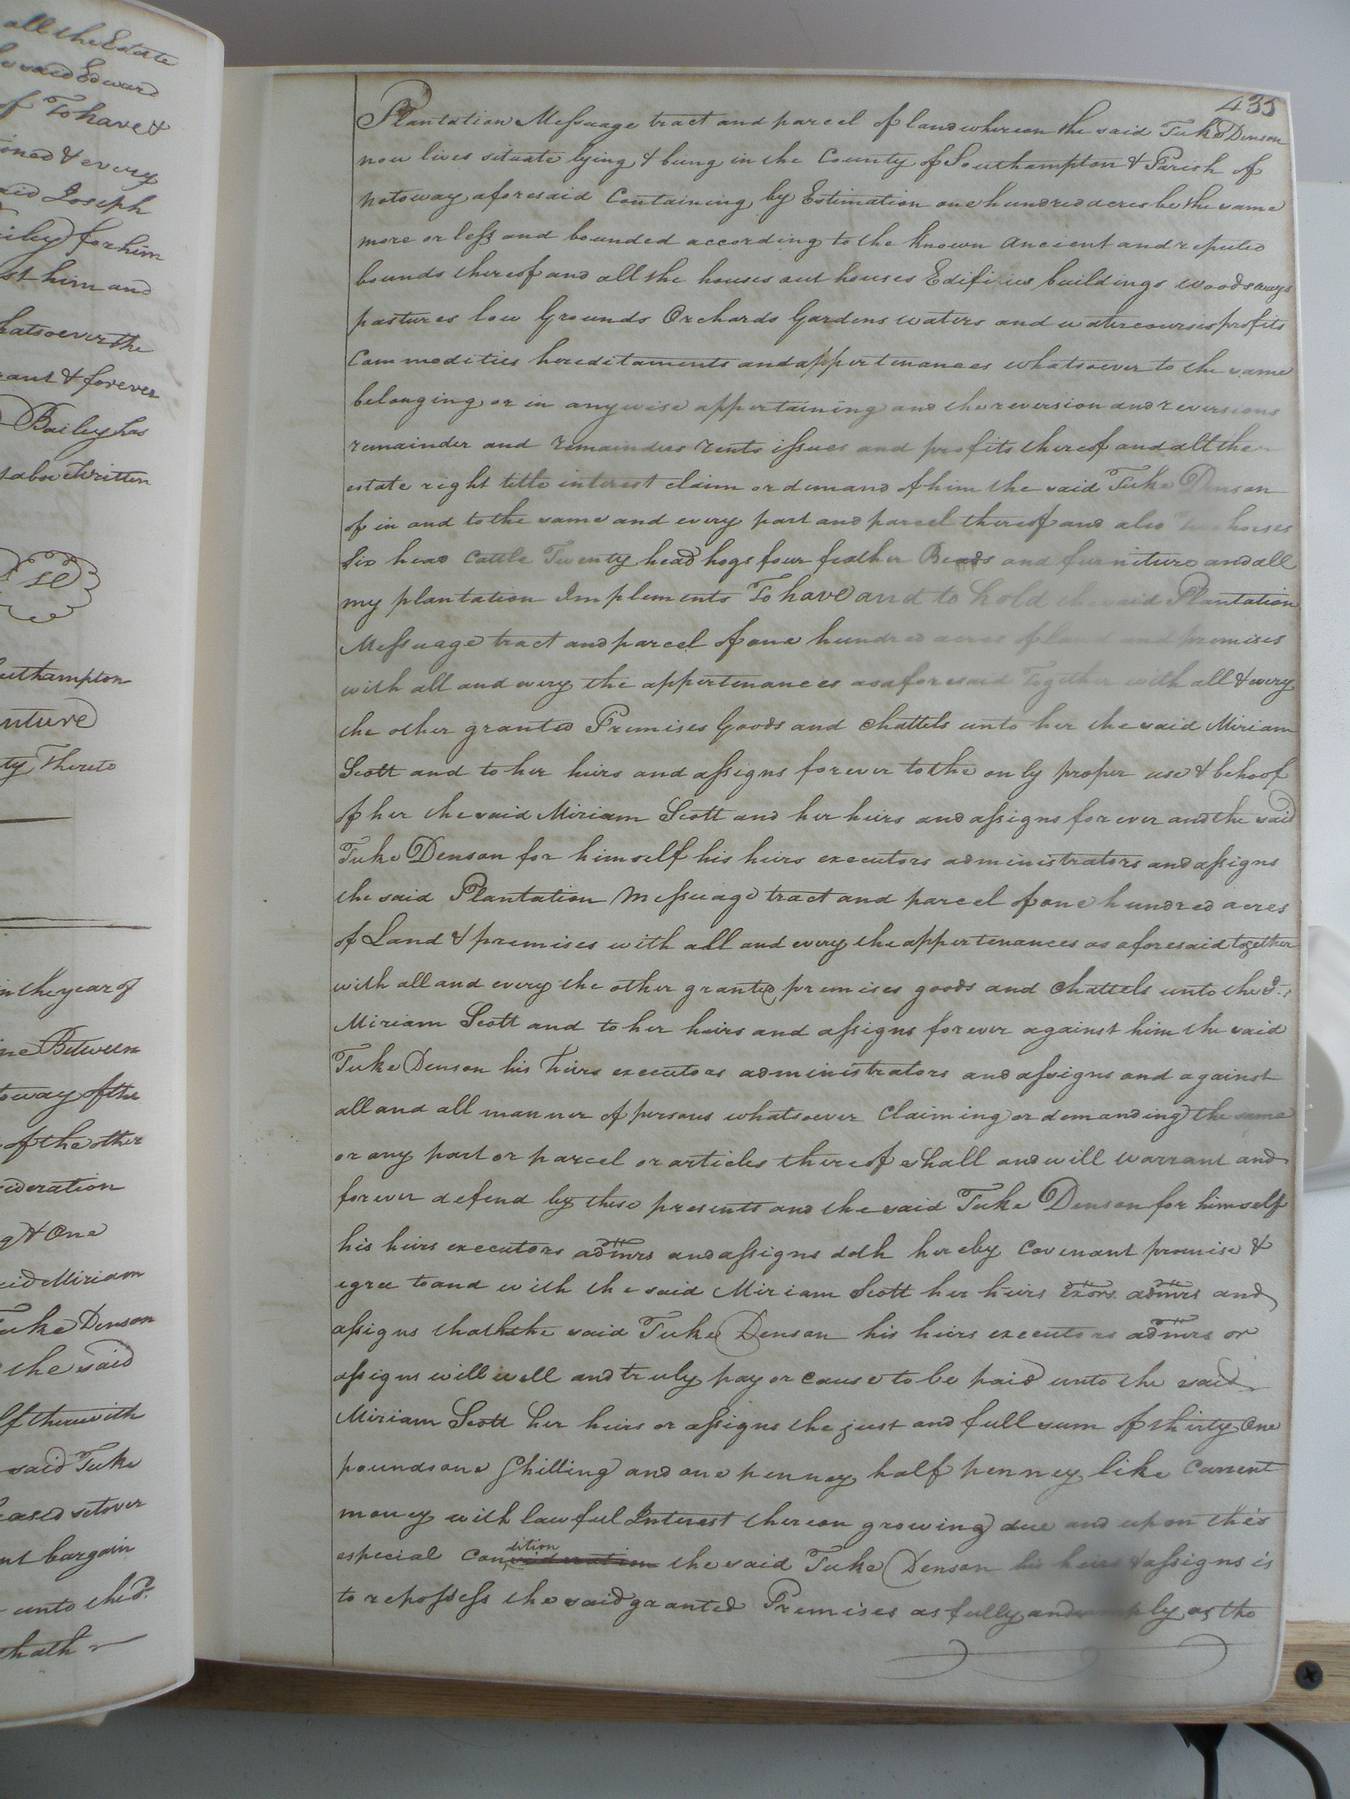 all the Estate
said Edward
of To have &
ioned & every
said Joseph
for him
st him and
hatsoever the
rant & forever
Bailey has
above Written
uthampton
nture
ty Thereto
in the year of
Between
toway of the
of the other
sideration
g & One
said Miriam
Tuke Denson
the said
lf therewith
said Tuke
eased setover
nt bargain
unto the sd.
hath
435
Plantation Messuage tract and parcel of land whereon the said Tuke Denson
now lives situate lying & being in the County of Southampton & Parish of
Notoway aforesaid Containing by Estimation one hundred acres be the same
more or less and bounded according to the known ancient and reputed
bounds thereof and all the houses out houses Edifices buildings woods ways
pastures low Grounds Orchards Gardens waters and watercourses profits
Commodities hereditaments and appertenances whatsoever to the same
belonging or in anywise appertaining and the reversion and reversions
remainder and remainders rents issues and profits thereof and all the
estate right title interest claim or demand of him the said Tuke Denson
of in and to the same and every part and parcel thereof and also two horses
Six head Cattle Twenty head hogs four feather Beads and furniture and all
my plantation Implements To have and to hold the said Plantation
Messuage tract and parcel of one hundred acres of land and premises
with all and every the appertenances as aforesaid Together with all & every
the other granted Premises Goods and Chattels unto her the said Miriam
Scott and to her heirs and assigns forever to the only proper use & behoof
of her the said Miriam Scott and her heirs and assigns forever and the said
Tuke Denson for himself his heirs executors administrators and assigns
the said Plantation Messuage tract and parcel of one hundred acres
of Land & premises with all and every the appertenances as aforesaid together
with all and every the other granted premises goods and Chattels unto the sd.
Miriam Scott and to her heirs and assigns forever against him the said
Tuke Denson his heirs executors administrators and assigns and against
all and all manner of persons whatsoever Claiming or demanding the same
or any part or parcel or articles thereof shall and will warrant and
forever defend by these presents and the said Tuke Denson for himself
his heirs executors admrs and assigns doth hereby Covenant promise &
agree to and with the said Miriam Scott her heirs exors. admrs and
assigns that the said Tuke Denson his heirs executors admrs or
assigns will well and truly pay or cause to be paid unto the said
Miriam Scott her heirs or assigns the just and full sum of thirty One
pounds one Shilling and one penney half penney like Current
money with lawful Interest thereon growing due and upon this
especial Condition the said Tuke Denson his heirs & assigns is
to repossess the said granted Premises as fully and amply as tho